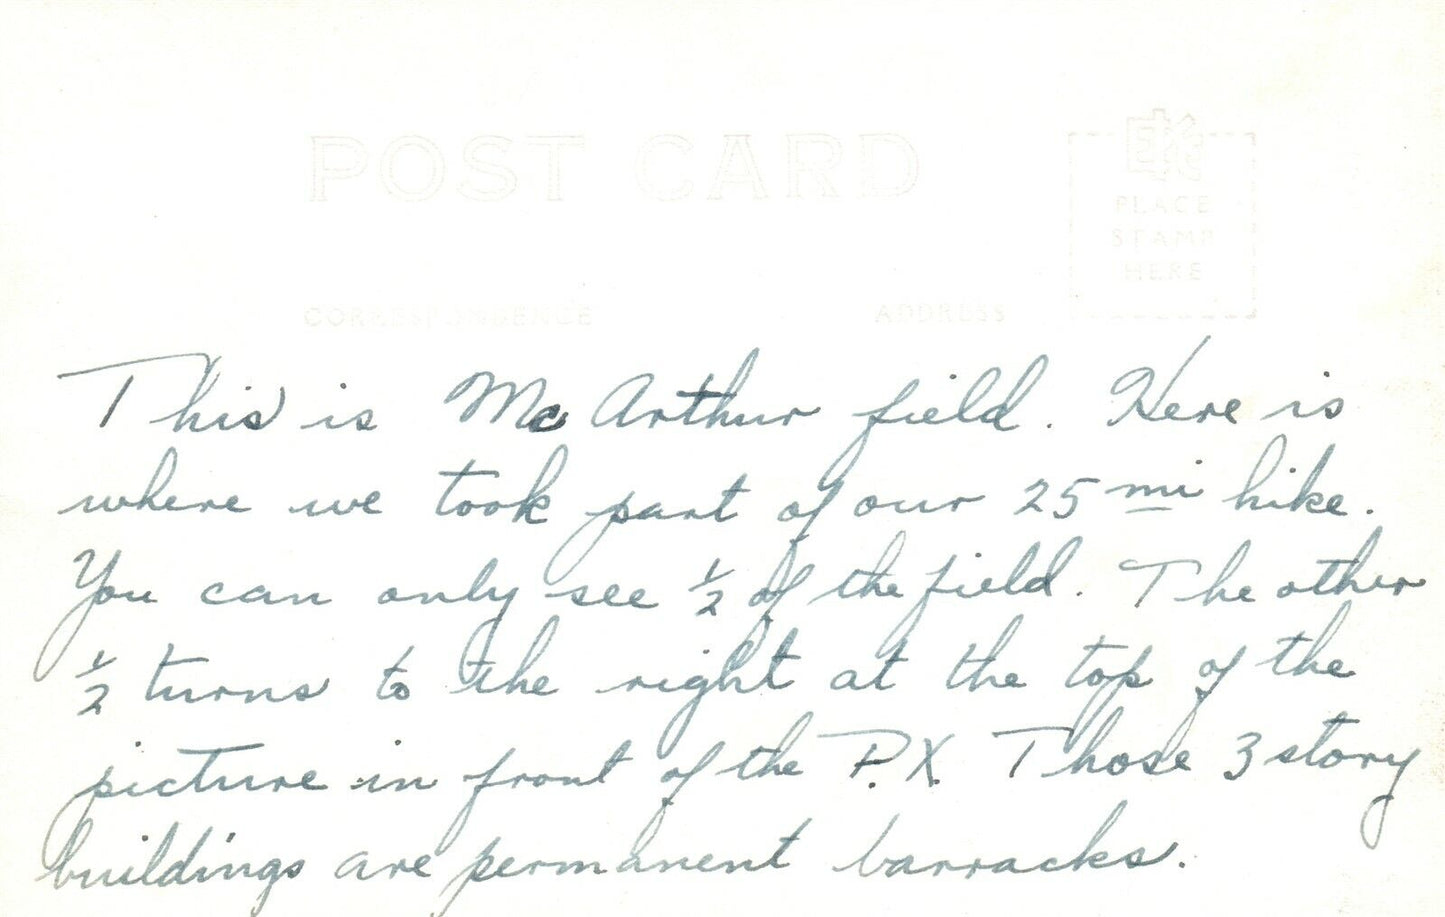 POST CARD
EKC
PLACE
STAMP
HERE
CORRESPONDENCE
ADDRESS
This is Mc Arthur field. Here is
where we took part of our 25 mi hike.
You can only see ½ of the field. The other
½ turns to the right at the top of the
picture in front of the P.X. Those 3 story
buildings are permanent barracks.